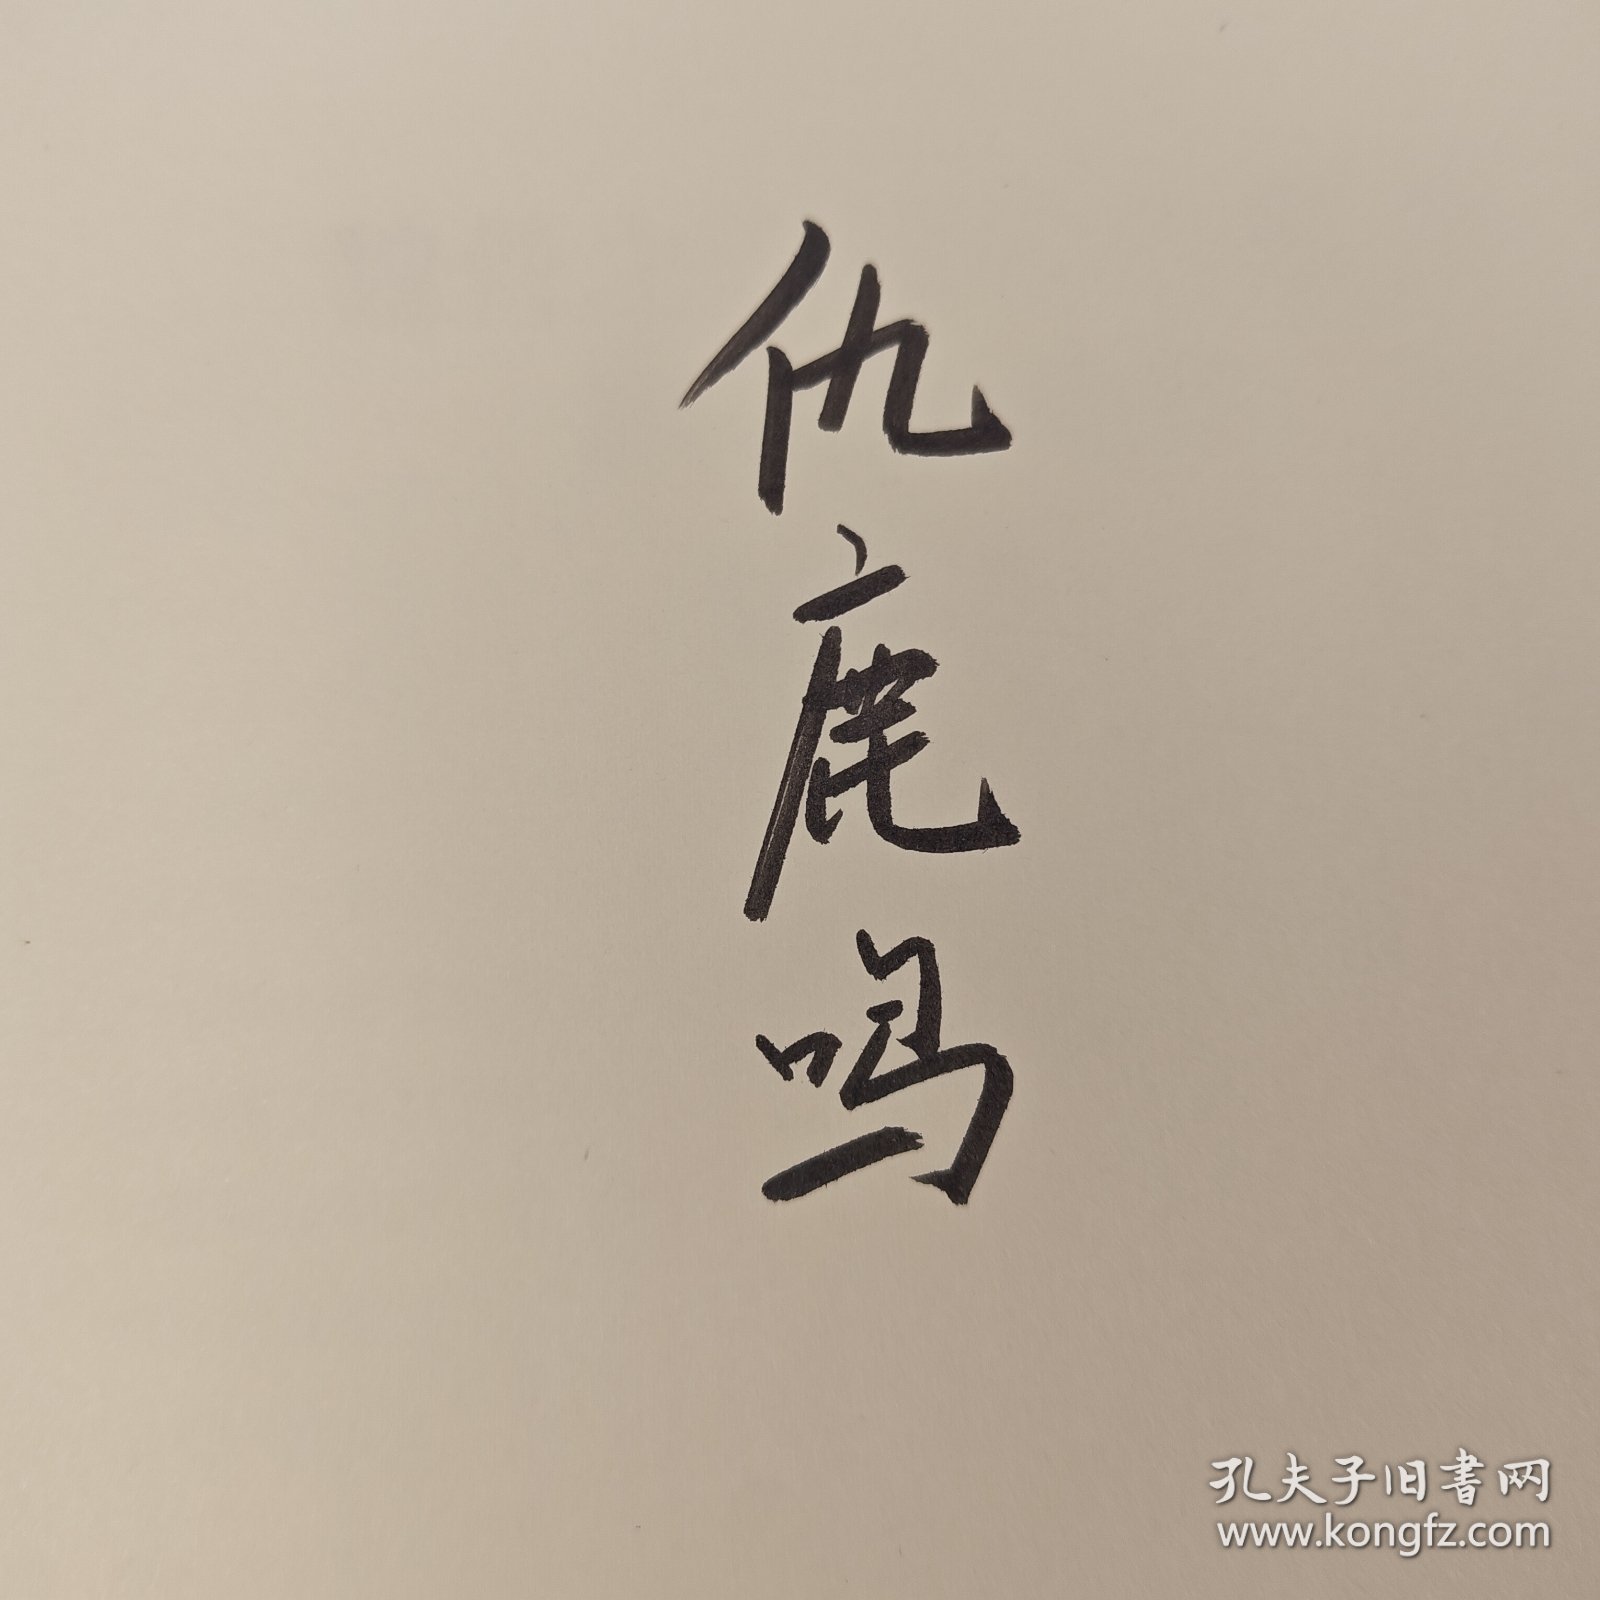 仇鹿鸣
孔夫子旧书网
www.kongfz.com